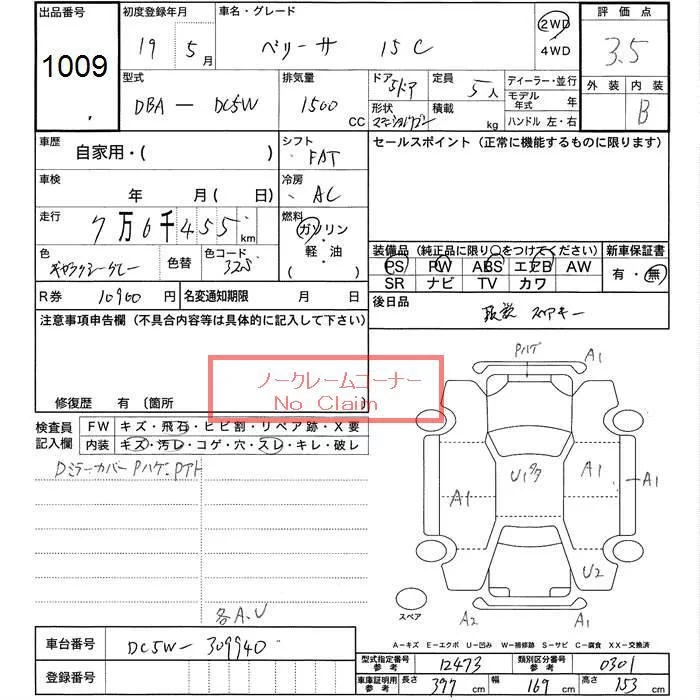 出品番号 初度登録年月 車名・グレード 2WD 評価点
1009 19 5月 ベリーサ 15C 4WD 3.5
型式 排気量 ドア 定員 ディーラー・並行 外装 内装
DBA — DC5W 1500 CC 5ドア 5人 モデル年式 年 B
形状 積載 kg ハンドル 左・右
車歴 自家用・( ) シフト FAT セールスポイント (正常に機能するものに限ります)
車検 年 月( 日) 冷房 AC
走行 7万6千455km 燃料 ガソリン・軽・油 ( )
色 ギャラクシーグレー 色替 色コード 32S
装備品 (純正品に限り○をつけてください) 新車保証書
PS PW ABS エアB AW 有・無
SR ナビ TV カワ
R券 10900 円 名変通知期限 月 日 後日品 取説 スペアキー
注意事項申告欄 (不具合内容等は具体的に記入して下さい)
ノークレームコーナー
No Claim
修復歴 有 〔箇所 〕
Pハゲ A1
検査員記入欄 FW キズ・飛石・ヒビ割・リペア跡・X要
内装 キズ・汚レ・コゲ・穴・スレ・キレ・破レ
Dミラーカバー Pハゲ
A1 A1 U1 A1 A1
U2
各A.U スペア A2 A1
A-キズ E-エクボ U-凹み W-補修跡 S-サビ C-腐食 XX-交換済
車台番号 DC5W-309940
登録番号
型式指定番号 参考 12473 類別区分番号 参考 0301
車庫証明用 参考 長さ 397 cm 幅 169 cm 高さ 153 cm